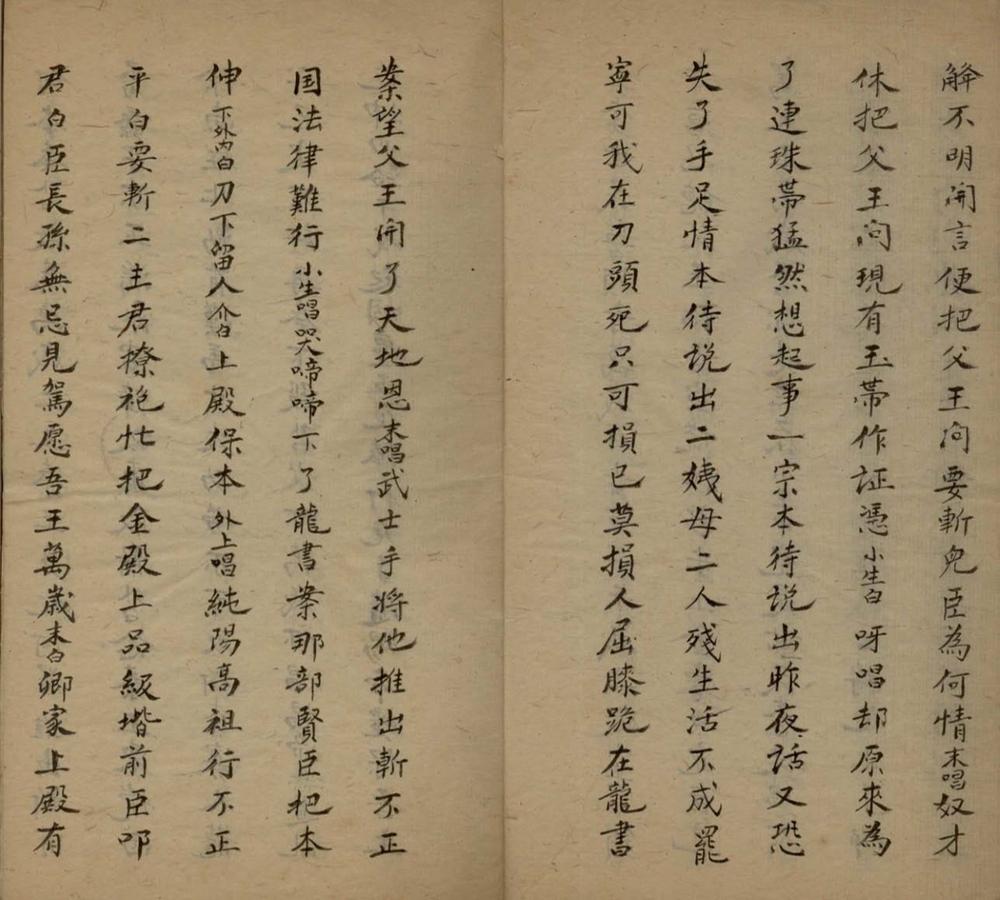 解不明開言便把父王问要斬児臣為何情末唱奴才
休把父王问現有玉帯作証憑小生白呀唱却原來為
了連珠帯猛然想起事一宗本待説出昨夜話又恐
失了手足情本待説出二姨母二人殘生活不成罷
寜可我在刀頭死只可損己莫損人屈膝跪在龍書
案望父王開了天地恩末唱武士手將他推出斬不正
国法律難行小生唱哭啼啼下了龍書案那部賢臣把本
伸下外内白刀下留人介白上殿保本外上唱純陽高祖行不正
平白要斬二主君撩袍忙把金殿上品級堦前臣叩
君白臣長孫無忌見駕愿吾王萬歳末白卿家上殿有